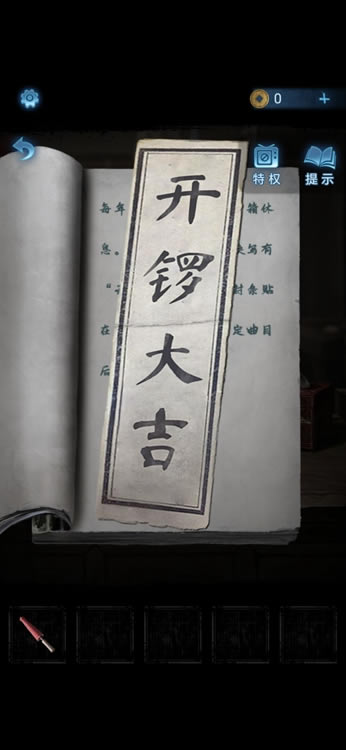 0
特权
提示
开
锣
大
吉
每年
箱休
息。
写有
封条贴
在
定曲目
后